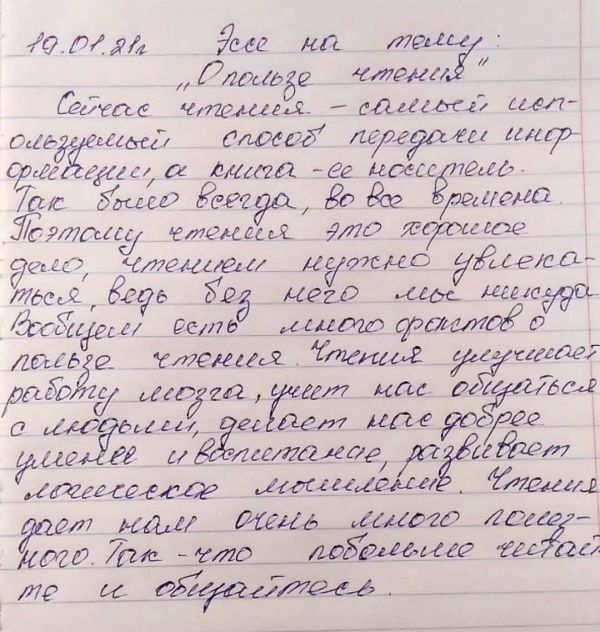 19.01.21г Эссе на тему:
„О пользе чтения"
Сейчас чтения - самый исп-
ользуемый способ передачи инфор-
ормации, а книга - ее носитель.
Так было всегда, во все времена.
Поэтому чтения это хорошое
дело, чтением нужно увлека-
ться, ведь без него мы никуда
Вообщем есть много фактов о
пользе чтения. Чтения улучшает
работу мозга, учит нас общаться
с людьми, делает нас добрее
умнее и воспитанее, развивает
логическое мышление. Чтения
дает нам очень много полез-
ного. Так-что побольше читай
те и общайтесь.